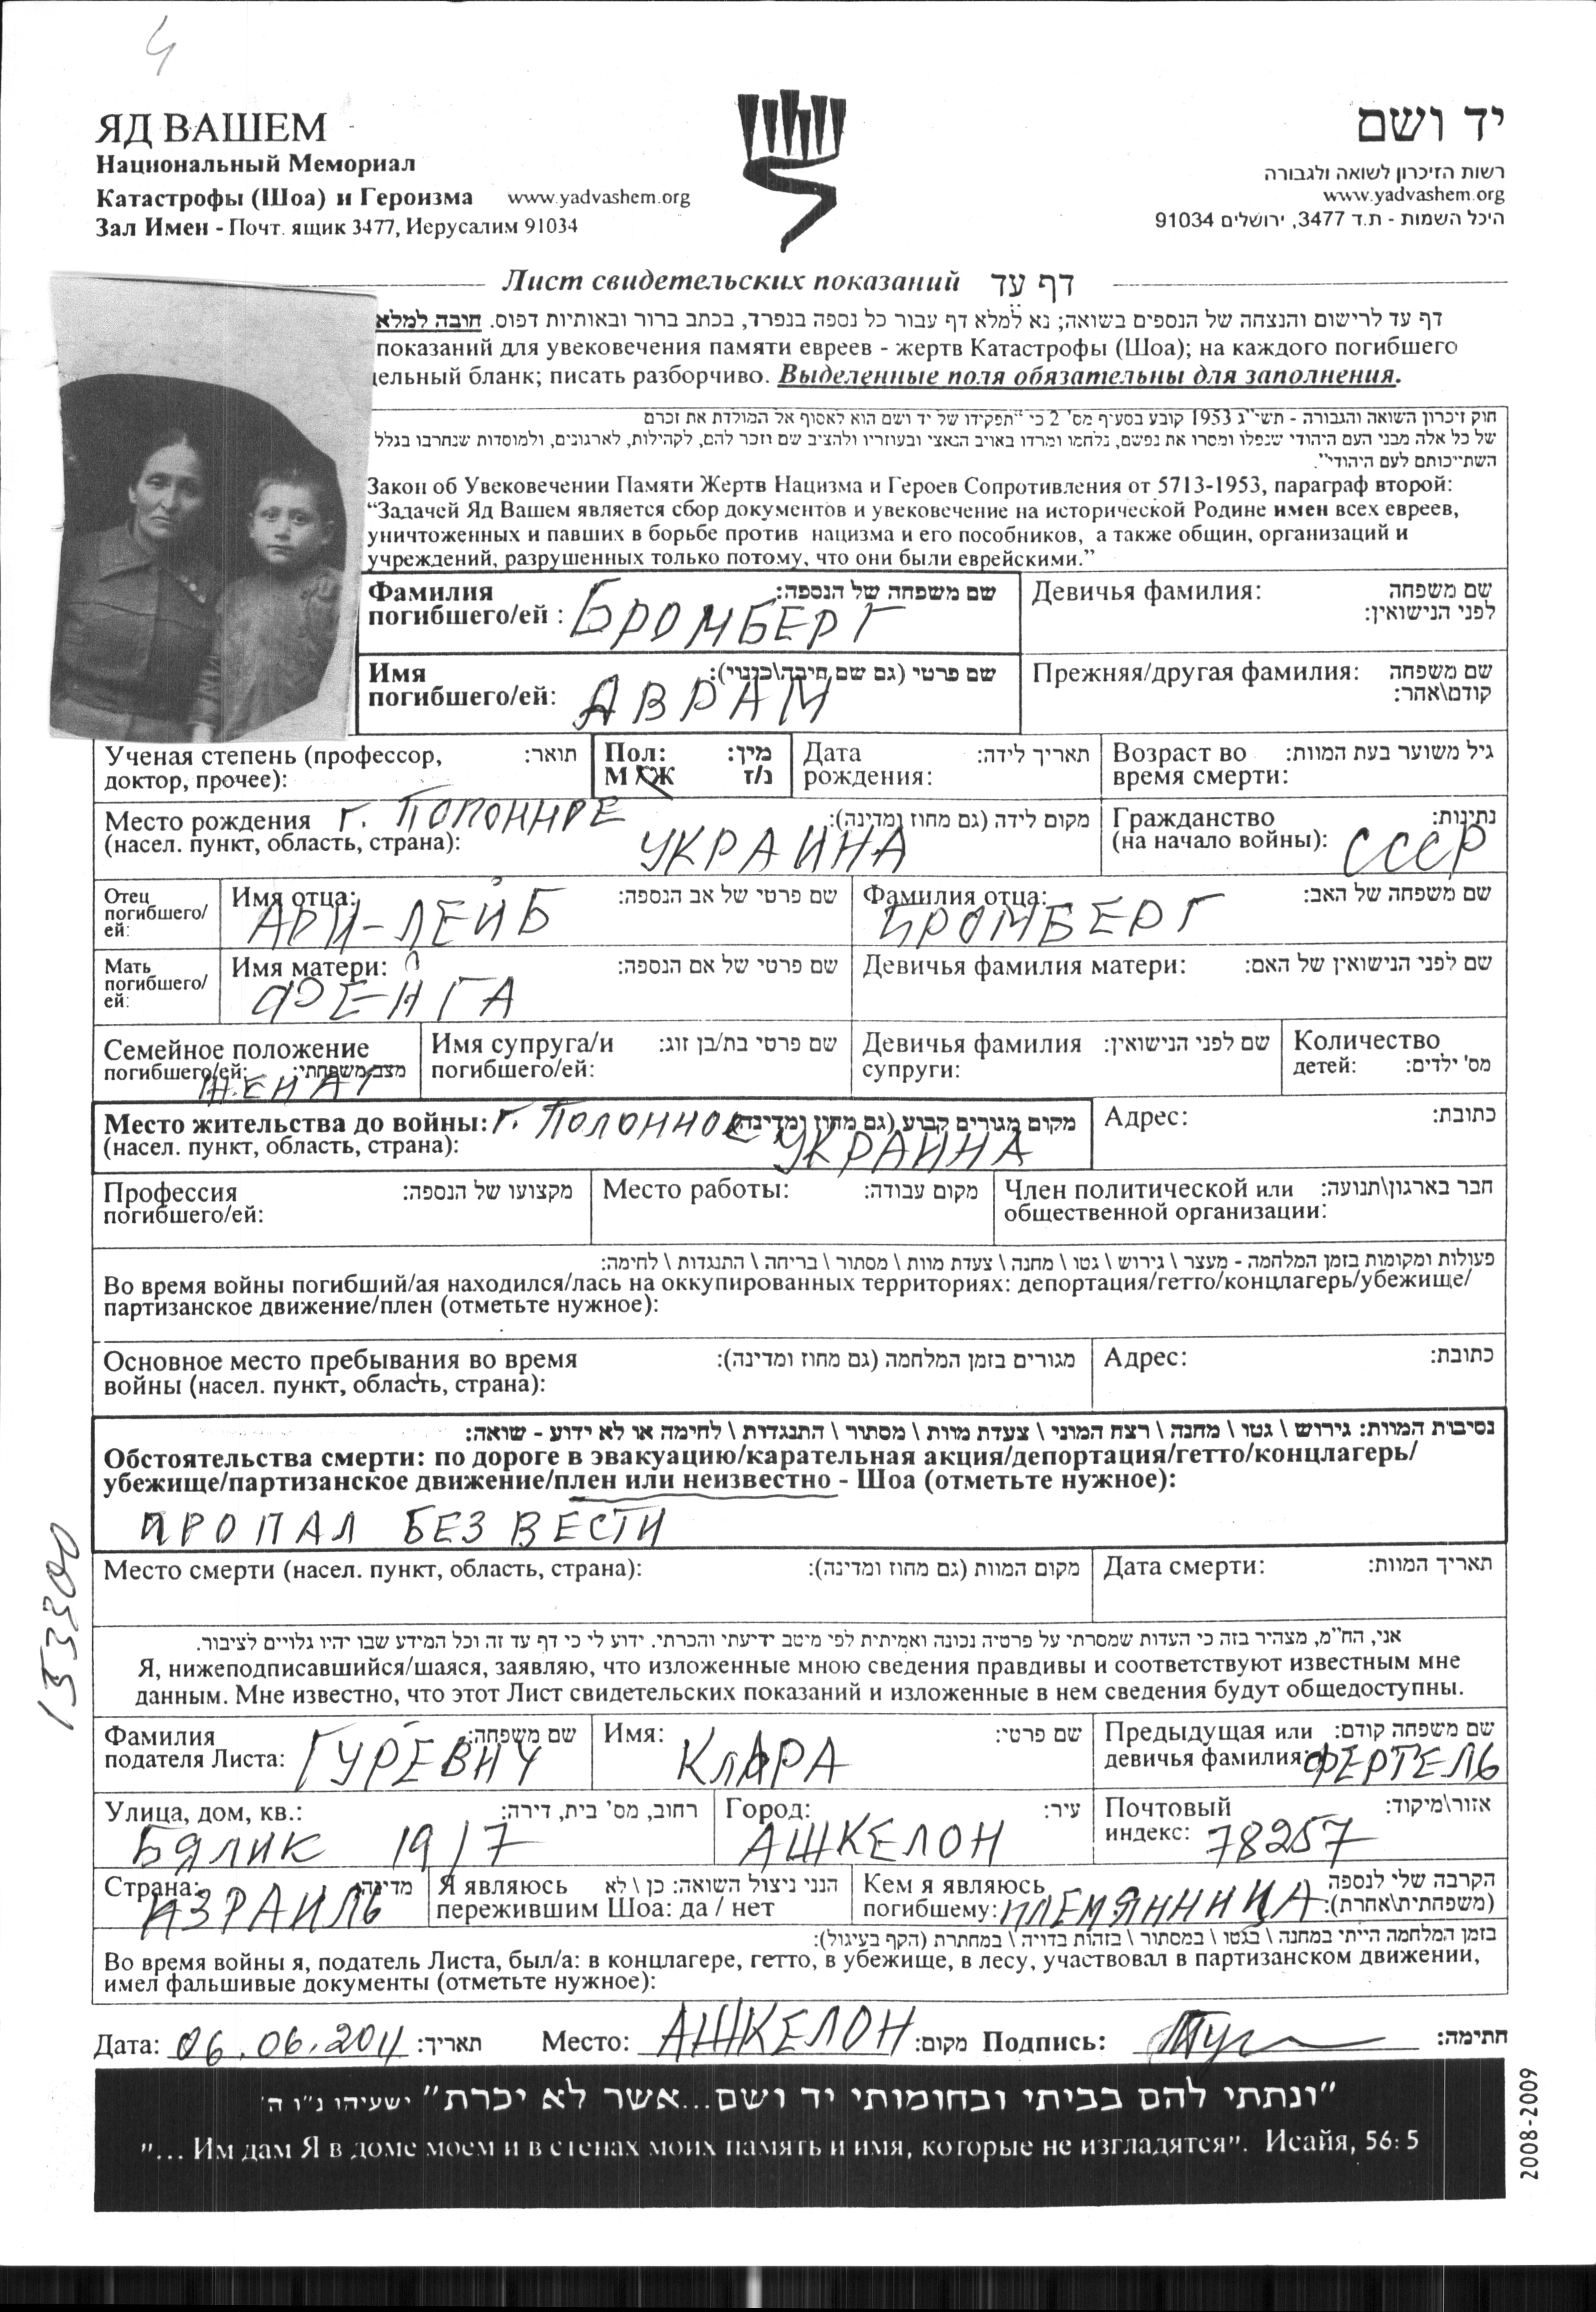 4
ЯД ВАШЕМ
Национальный Мемориал
Катастрофы (Шоа) и Героизма www.yadvashem.org
Зал Имен - Почт. ящик 3477, Иерусалим 91034
יד ושם
רשות הזיכרון לשואה ולגבורה
www.yadvashem.org
היכל השמות - ת.ד 3477, ירושלים 91034
Лист свидетельских показаний דף עד
דף עד לרישום והנצחה של הנספים בשואה; נא למלא דף עבור כל נספה בנפרד, בכתב ברור ובאותיות דפוס. חובה למלא
показаний для увековечения памяти евреев - жертв Катастрофы (Шоа); на каждого погибшего
дельный бланк; писать разборчиво. Выделенные поля обязательны для заполнения.
חוק זיכרון השואה והגבורה - תשי"ג 1953 קובע בסעיף מס' 2 כי "תפקידו של יד ושם הוא לאסוף אל המולדת את זכרם
של כל אלה מבני העם היהודי שנפלו ומסרו את נפשם, נלחמו ומרדו באויב הנאצי ובעוזריו ולהציב שם וזכר להם, לקהילות, לארגונים, ולמוסדות שנחרבו בגלל
השתייכותם לעם היהודי".
Закон об Увековечении Памяти Жертв Нацизма и Героев Сопротивления от 5713-1953, параграф второй:
“Задачей Яд Вашем является сбор документов и увековечение на исторической Родине имен всех евреев,
уничтоженных и павших в борьбе против нацизма и его пособников, а также общин, организаций и
учреждений, разрушенных только потому, что они были еврейскими.”
Фамилия погибшего/ей : שם משפחה של הנספה: БРОМБЕРГ
Девичья фамилия: שם משפחה לפני הנישואין:
Имя погибшего/ей: שם פרטי (גם שם חיבה\כנוי): АВРАМ
Прежняя/другая фамилия: שם משפחה קודם\אחר:
Ученая степень (профессор, доктор, прочее): תואר:
Пол: М Ж מין: ז/נ
Дата рождения: תאריך לידה:
Возраст во время смерти: גיל משוער בעת המוות:
Место рождения (насел. пункт, область, страна): מקום לידה (גם מחוז ומדינה): г. ПОЛОННОЕ УКРАИНА
Гражданство (на начало войны): נתינות: СССР
Отец погибшего/ей: Имя отца: שם פרטי של אב הנספה: АРИ-ЛЕЙБ
Фамилия отца: שם משפחה של האב: БРОМБЕРГ
Мать погибшего/ей: Имя матери: שם פרטי של אם הנספה:
Девичья фамилия матери: שם לפני הנישואין של האם:
Семейное положение погибшего/ей: מצב משפחתי: ЖЕНАТ
Имя супруга/и погибшего/ей: שם פרטי בת/בן זוג:
Девичья фамилия супруги: שם לפני הנישואין:
Количество детей: מס' ילדים:
Место жительства до войны: (насел. пункт, область, страна): מקום מגורים קבוע (גם מחוז ומדינה): г. ПОЛОННОЕ УКРАИНА
Адрес: כתובת:
Профессия погибшего/ей: מקצועו של הנספה:
Место работы: מקום עבודה:
Член политической или общественной организации: חבר בארגון\תנועה:
פעולות ומקומות בזמן המלחמה - מעצר \ גירוש \ גטו \ מחנה \ צעדת מוות \ מסתור \ בריחה \ התנגדות \ לחימה:
Во время войны погибший/ая находился/лась на оккупированных территориях: депортация/гетто/концлагерь/убежище/
партизанское движение/плен (отметьте нужное):
Основное место пребывания во время войны (насел. пункт, область, страна): מגורים בזמן המלחמה (גם מחוז ומדינה):
Адрес: כתובת:
נסיבות המוות: גירוש \ גטו \ מחנה \ רצח המוני \ צעדת מוות \ מסתור \ התנגדות \ לחימה או לא ידוע - שואה:
Обстоятельства смерти: по дороге в эвакуацию/карательная акция/депортация/гетто/концлагерь/
убежище/партизанское движение/плен или неизвестно - Шоа (отметьте нужное):
ПРОПАЛ БЕЗ ВЕСТИ
Место смерти (насел. пункт, область, страна): מקום המוות (גם מחוז ומדינה):
Дата смерти: תאריך המוות:
153300
אני, הח"מ, מצהיר בזה כי העדות שמסרתי על פרטיה נכונה ואמיתית לפי מיטב ידיעתי והכרתי. ידוע לי כי דף עד זה וכל המידע שבו יהיו גלויים לציבור.
Я, нижеподписавшийся/шаяся, заявляю, что изложенные мною сведения правдивы и соответствуют известным мне
данным. Мне известно, что этот Лист свидетельских показаний и изложенные в нем сведения будут общедоступны.
Фамилия подателя Листа: שם משפחה: ГУРЕВИЧ
Имя: שם פרטי: КЛАРА
Предыдущая или девичья фамилия: שם משפחה קודם: ФЕРТЕЛЬ
Улица, дом, кв.: רחוב, מס' בית, דירה: БЯЛИК 19/7
Город: עיר: АШКЕЛОН
Почтовый индекс: אזור\מיקוד: 78257
Страна: מדינה: ИЗРАИЛЬ
Я являюсь пережившим Шоа: да / нет הנני ניצול השואה: כן \ לא
Кем я являюсь погибшему: הקרבה שלי לנספה (משפחתית\אחרת): ПЛЕМЯННИЦА
בזמן המלחמה הייתי במחנה \ בגטו \ במסתור \ בזהות בדויה \ במחתרת (הקף בעיגול):
Во время войны я, податель Листа, был/а: в концлагере, гетто, в убежище, в лесу, участвовал в партизанском движении,
имел фальшивые документы (отметьте нужное):
Дата: 06.06.2011 תאריך: Место: АШКЕЛОН מקום: Подпись: חתימה:
"ונתתי להם בביתי ובחומותי יד ושם...אשר לא יכרת" ישעיהו נ"ו ה'
"... Им дам Я в доме моем и в стенах моих память и имя, которые не изгладятся". Исайя, 56: 5
2008-2009